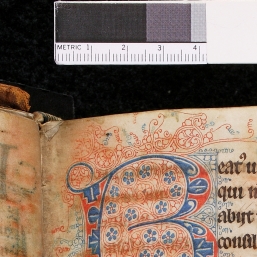 METRIC 1 2 3 4
Beatꝰ u
qui n
abijt
consil